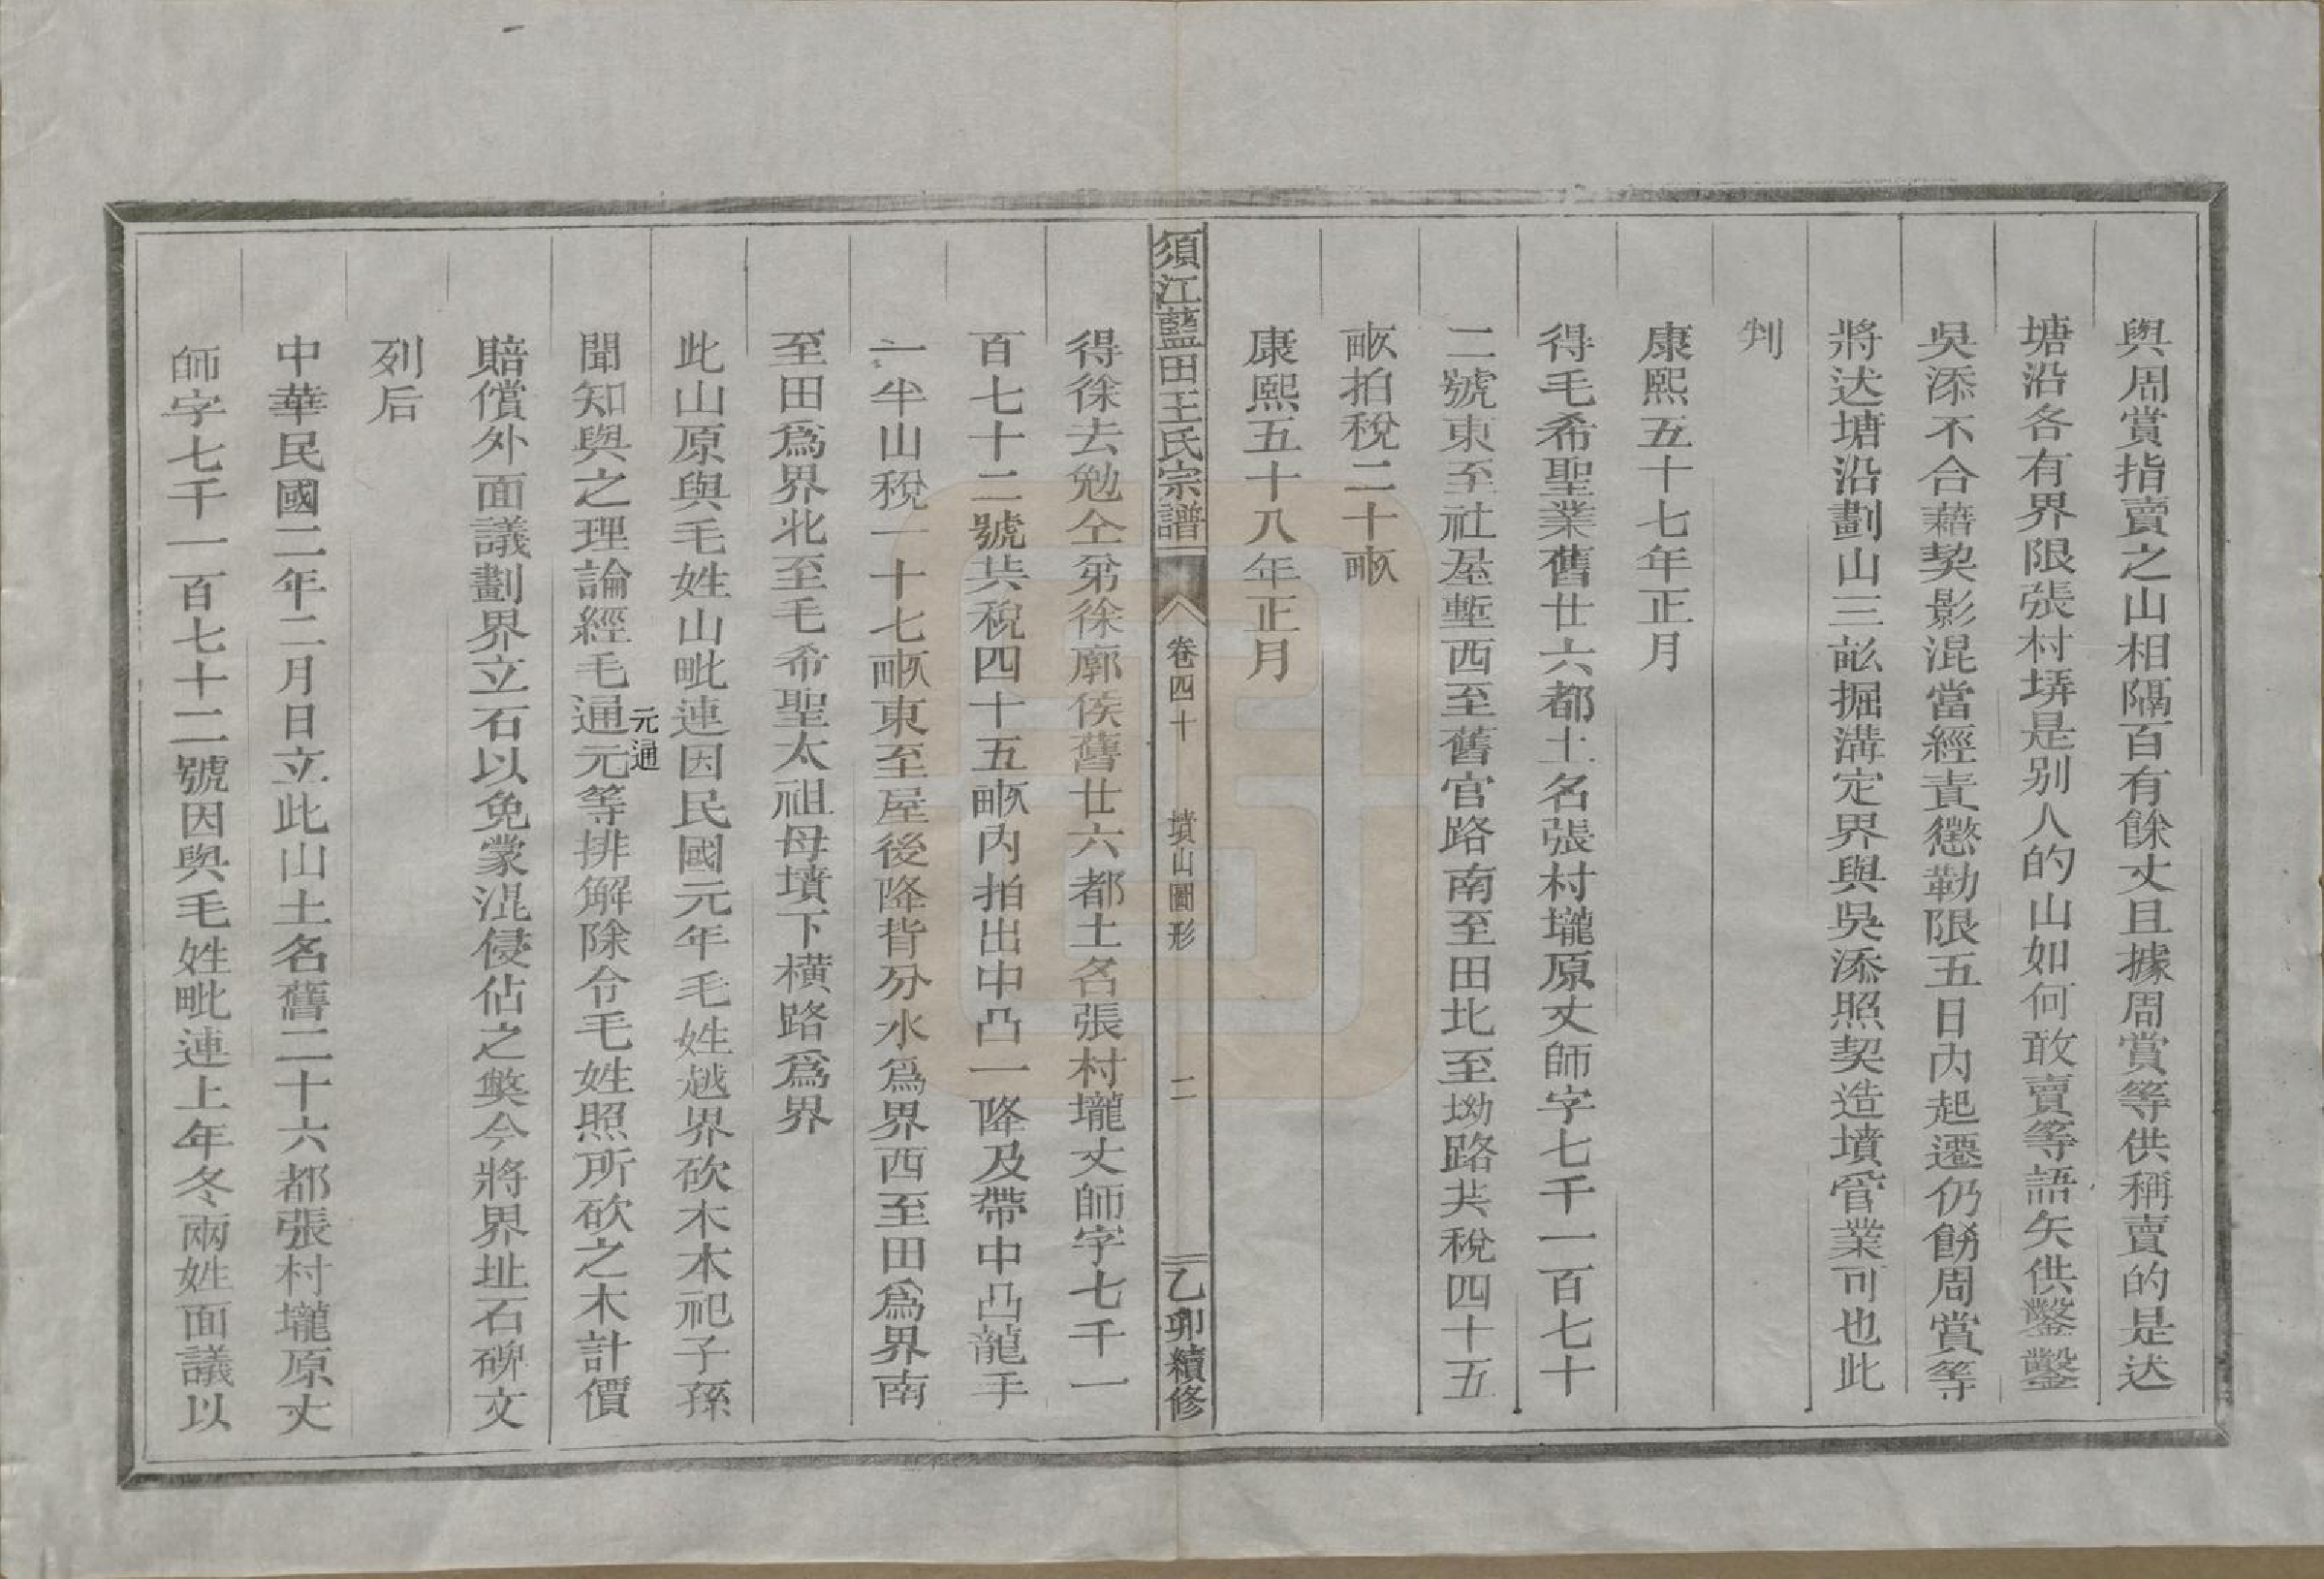 與周賞指賣之山相隔百有餘丈且據周賞等供稱賣的是送
塘沿各有界限張村塝是别人的山如何敢賣等語矢供鑿鑿
吳添不合藉契影混當經責懲勒限五日内起遷仍餙周賞等
將送塘沿劃山三畝掘溝定界與吳添照契造墳管業可也此
判
康熙五十七年正月
得毛希聖業舊廿六都土名張村壠原丈師字七千一百七十
二號東至社屋塹西至舊官路南至田北至坳路共稅四十五
畝拍稅二十畝
康熙五十八年正月
須江藍田王氏宗譜
卷四十
墳山圖形
二
乙卯續修
得徐去勉仝弟徐廓侯舊廿六都土名張村壠丈師字七千一
百七十二號共稅四十五畝内拍出中凸一降及帶中凸龍手
一半山稅一十七畝東至屋後降背分水爲界西至田爲界南
至田爲界北至毛希聖太祖母墳下橫路爲界
此山原與毛姓山毗連因民國元年毛姓越界砍木木祀子孫
聞知與之理論經毛通元等排解除令毛姓照所砍之木計價
元通
賠償外面議劃界立石以免蒙混侵佔之獘今將界址石碑文
列后
中華民國二年二月日立此山土名舊二十六都張村壠原丈
師字七千一百七十二號因與毛姓毗連上年冬兩姓面議以